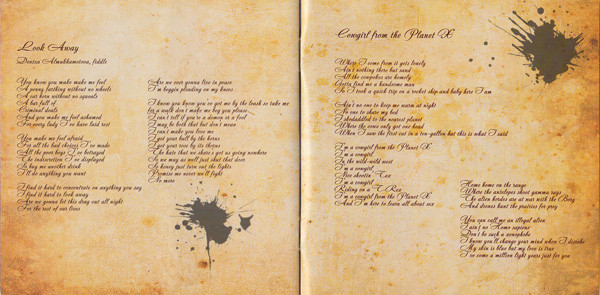 Look Away
Denisa Almukhametova, fiddle
You know you make make me feel
A penny farthing without no wheels
A car horn without no sounds
A bar full of
Criminal deals
And you make me feel ashamed
For every lady I've have laid waist
You make me feel afraid
For all the bad choices I've made
All the poor boys I've betrayed
The insurrection I've displayed
So buy me another drink
I'll do anything you want
I find it hard to concentrate on anything you say
I find it hard to look away
Are we gonna let this drag out all night
For the rest of our lives
Are we ever gonna live in peace
I'm beggin pleading on my knees
I know you know you've got me by the leash so take me
for a walk don't make me beg you please
I can't tell if you're a demon or a
I may be both but that don't mean
I can't make you love me
I got your bull by the horns
I got your rose by its thorns
The hate that we share's got us going nowhere
So we may as well just shut that door
So honey just turn out the lights
Promise me never we'll fight
No more
Cowgirl from the Planet X
Where I come from it gets lonely
Ain't nothing there but sand
All the cowpokes are homely
Gotta find me a handsome man
So I took a quick trip on a rocket ship and baby here I am
Ain't no one to keep me warm at night
No one to share my bed
I skedaddled to the nearest planet
Where the cows only got one head
When I saw the first out in a ten-gallon hat this is what I said
I'm a cowgirl from the Planet X
I'm a cowgirl
In the wild-wild west
I'm a cowgirl
Five shootin' Tex
I'm a cowgirl
Riding on a T-Rex
I'm a cowgirl from the Planet X
And I'm here to learn all about sex
Home home on the range
Where the antelopes shoot gamma rays
The alien hordes are at war with the Borg
And drones hunt the prairies for prey
You can call me an illegal alien
I ain't no Homo sapiens
Don't be such a xenophobe
I know you'll change your mind when I disrobe
My skin is blue but my love is true
I've come a million light years just for you